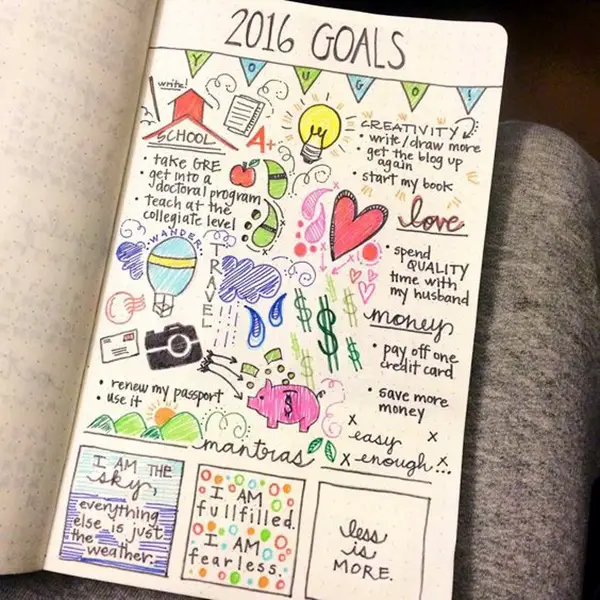 2016 GOALS
YOU GO!
write!
SCHOOL
A+
• take GRE
• get into a
doctoral program
• teach at the
collegiate level
CREATIVITY
• write/draw more
get the blog up
again
• start my book
love
• spend
QUALITY
time with
my husband
WANDER
TRAVEL
• renew my passport
• use it
money
• pay off one
credit card
• save more
money
easy
enough...
$
mantras
I AM THE
sky,
everything
else is just
the weather.
I AM
fullfilled.
I AM
fearless.
less
is
MORE.